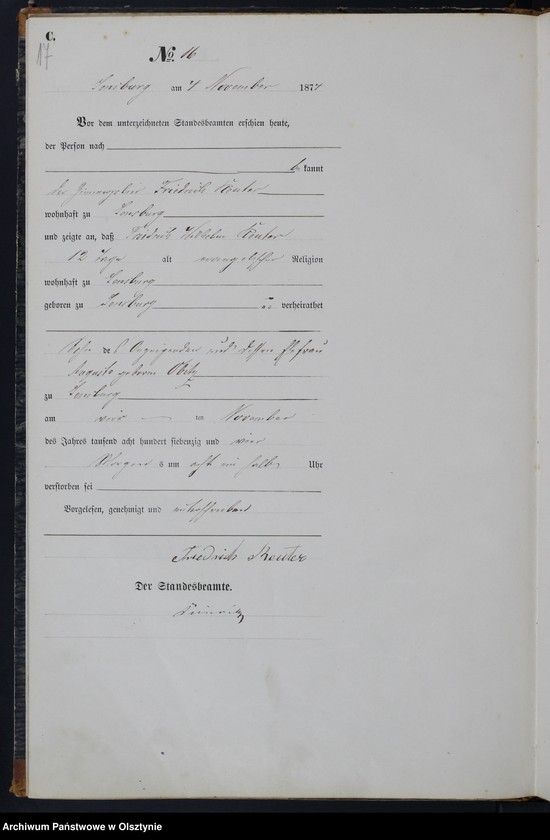 C.
17
No. 16
Sensburg am 4 November 1874
Vor dem unterzeichneten Standesbeamten erschien heute,
der Person nach
be kannt
der Friedrich Reuter
wohnhaft zu Sensburg
und zeigte an, daß Friedrich Wilhelm Reuter
12 Tage alt evangelischer Religion
wohnhaft zu Sensburg
geboren zu Sensburg verheirathet
Sohn des Anzeigenden und dessen Ehefrau
Auguste geborene
zu Sensburg
am vier ten November
des Jahres tausend acht hundert siebenzig und vier
Morgen s um acht ein halb Uhr
verstorben sei
Vorgelesen, genehmigt und unterschrieben
Friedrich Reuter
Der Standesbeamte.
Archiwum Państwowe w Olsztynie